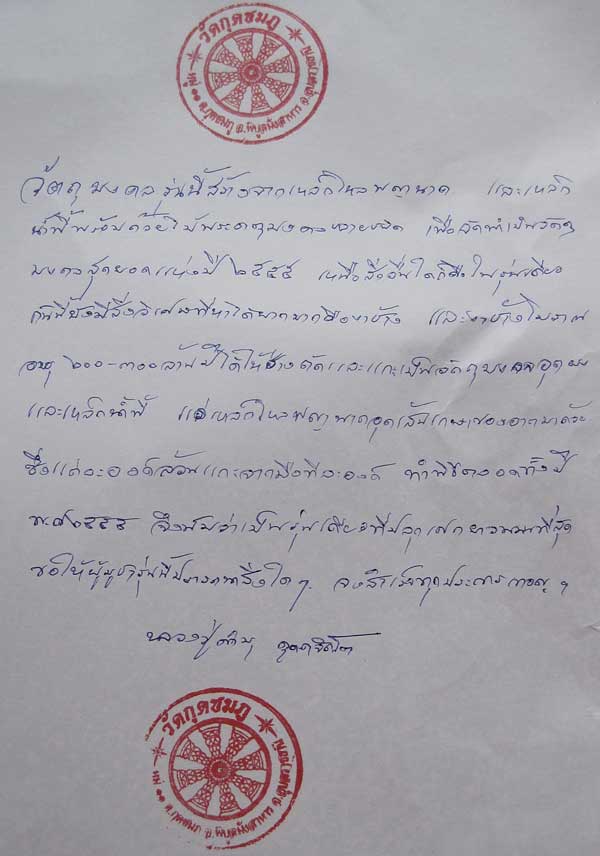 วัดกุดชมภู
หมู่ ๑๑ ต.กุดชมภู อ.พิบูลมังสาหาร จ.อุบลราชธานี
วัตถุมงคลรุ่นนี้สร้างจากเหล็กไหลพญานาค และเหล็ก
น้ำพี้พร้อมด้วยไม้พระธาตุมงคลหลายชนิด เพื่อจัดทำเป็นวัตถุ
มงคลสุดยอดแห่งปี ๒๕๕๕ เหนือสิ่งอื่นใดก็คือในรุ่นเดียว
กันนี้ยังมีสิ่งวิเศษที่หาได้ยากมากคืองาช้าง และงาช้างโบราณ
อายุ ๒๐๐-๓๐๐ล้านปีได้ให้ช่างตัดและแกะเป็นวัตถุมงคลอุดผง
และเหล็กน้ำพี้ แร่เหล็กไหลพญานาคอุดเส้นเกษาของอาตมาด้วย
ซึ่งแต่ละองค์ล้วนแกะจากมือทีละองค์ ทำพิธีตลอดทั้งปี
พ.ศ ๒๕๕๕ จึงนับว่าเป็นรุ่นเดียวที่ปลุกเสกยาวนานที่สุด
ขอให้ผู้บูชารุ่นนี้ปรารถนาสิ่งใดๆ จงสำเร็จทุกประการเทอญ ฯ
หลวงปู่คำบุ คุตฺตจิตฺโต
วัดกุดชมภู
หมู่ ๑๑ ต.กุดชมภู อ.พิบูลมังสาหาร จ.อุบลราชธานี